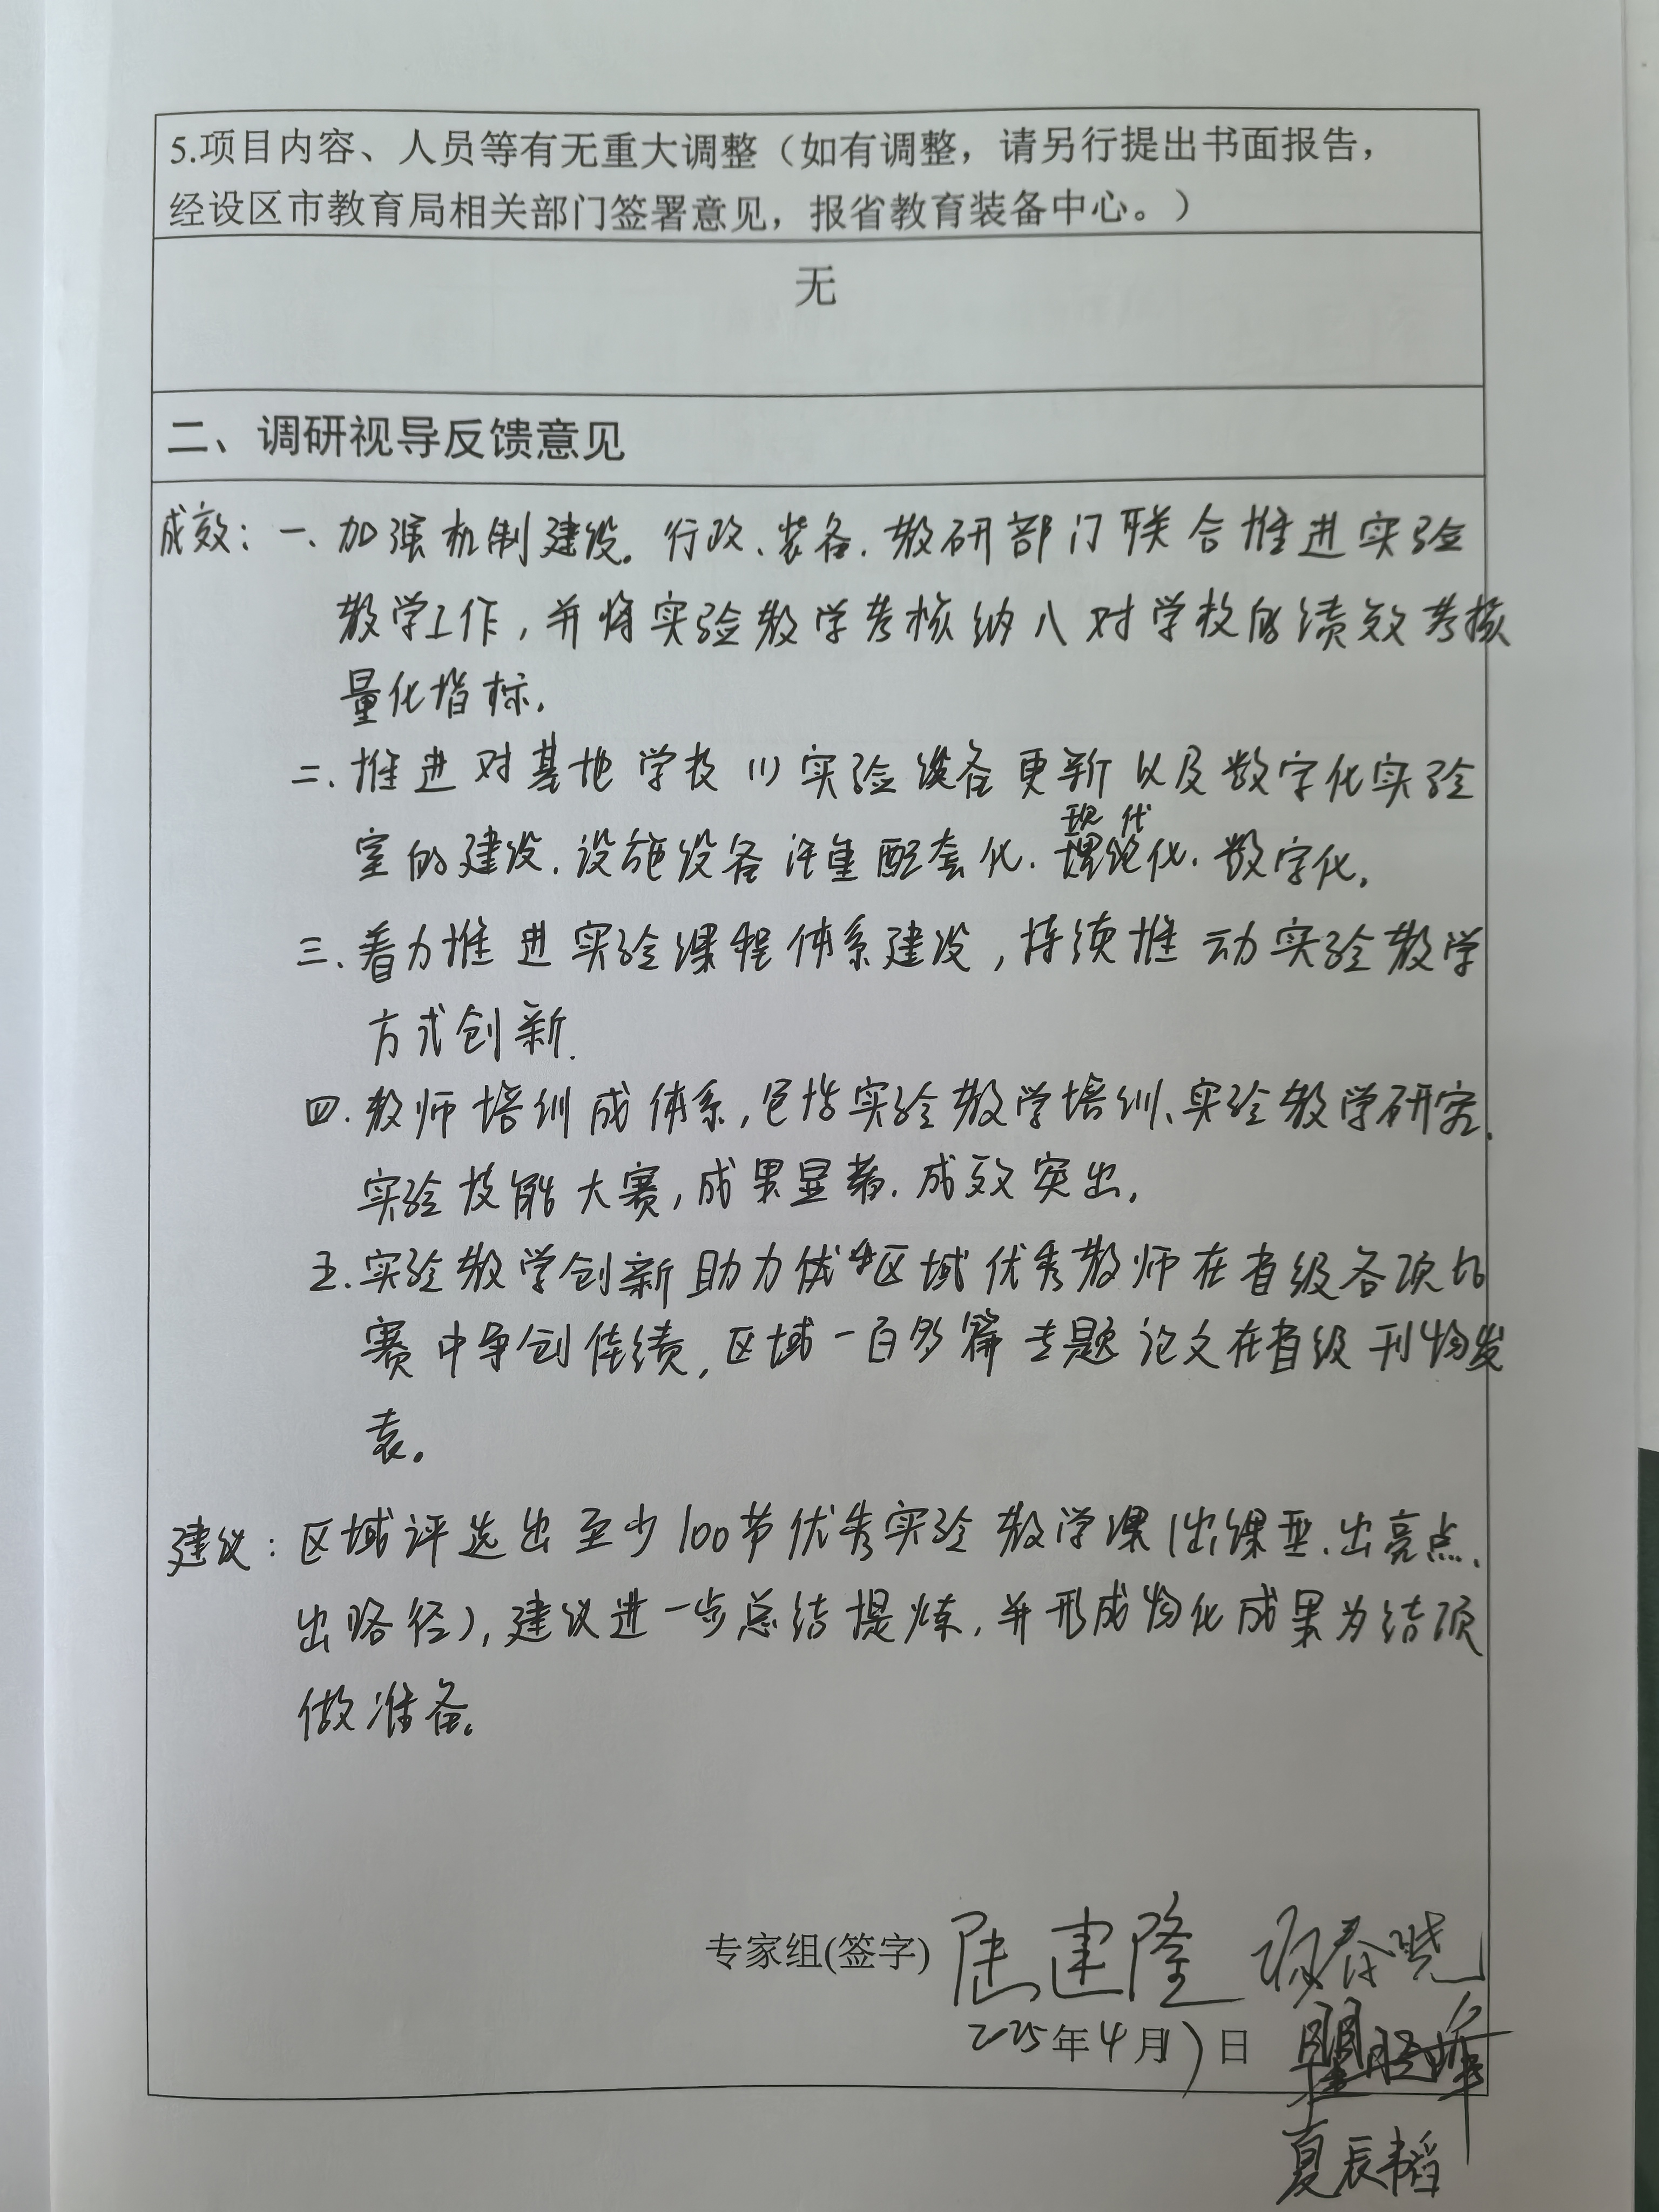 5.项目内容、人员等有无重大调整（如有调整，请另行提出书面报告，
经设区市教育局相关部门签署意见，报省教育装备中心。）
无
二、调研视导反馈意见
成效：一、加强机制建设。行政、装备、教研部门联合推进实验
教学工作，并将实验教学考核纳入对学校的绩效考核
量化指标。
二、推进对基地学校的实验设备更新以及数字化实验
现代
室的建设.设施设备注重配套化、化、数字化。
三、着力推进实验课程体系建设，持续推动实验教学
方式创新.
四.教师培训成体系，包括实验教学培训、实验教学研究、
实验技能大赛，成果显著.成效突出。
五.实验教学创新助力区域优秀教师在省级各项比
赛中争创佳绩，区域一百多篇专题论文在省级刊物发
表。
建议：区域评选出至少100节优秀实验教学课（出课型、出亮点、
出路径），建议进一步总结提炼，并形成物化成果为结项
做准备。
专家组(签字) 陆建隆
2025年4月 日
夏辰韬